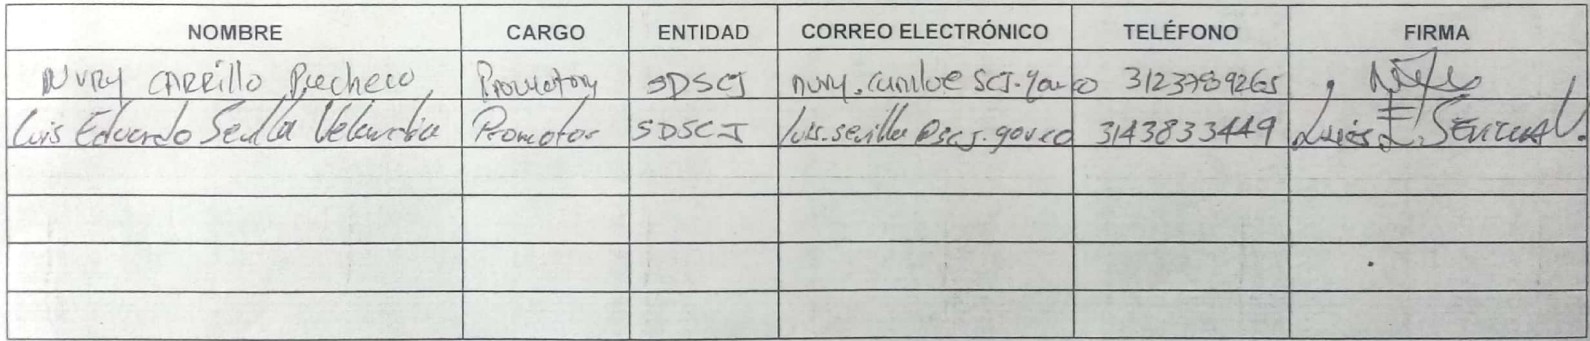 NOMBRE CARGO ENTIDAD CORREO ELECTRÓNICO TELÉFONO FIRMA
NURY CARRILLO Pacheco Promotora SDSCJ nury.carrillo@scj.gov.co 3123789265
Luis Eduardo Sevilla Velandia Promotor SDSCJ luis.sevilla@scj.gov.co 3143833449 Luis E. SEVILLA V.